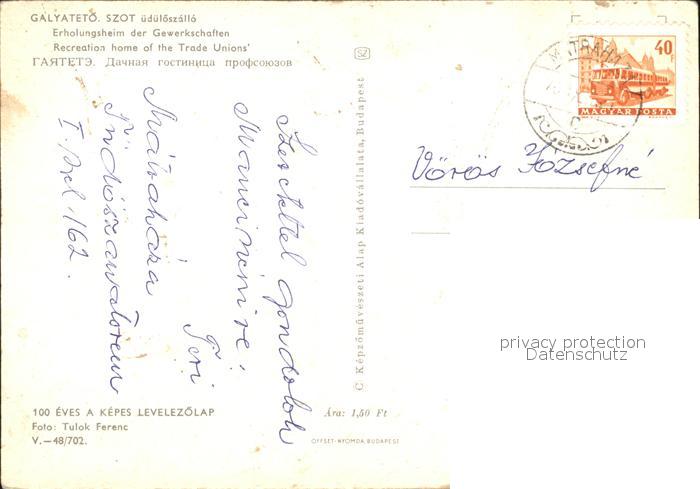 GALYATETŐ. SZOT üdülőszálló
Erholungsheim der Gewerkschaften
Recreation home of the Trade Unions'
ГАЯТЕТЭ. Дачная гостиница профсоюзов
Szeretettel gondolok
Manci nénire!
Teri
Mátraháza
Tüdőszanatórium
I.
162.
100 ÉVES A KÉPES LEVELEZŐLAP
Foto: Tulok Ferenc
V.—48/702.
Ára: 1,50 Ft
OFFSET-NYOMDA, BUDAPEST
C Képzőművészeti Alap Kiadóvállalata, Budapest
SZ
40 F
MAGYAR POSTA
MÁTRAHÁZA
Vörös Józsefné
privacy protection
Datenschutz